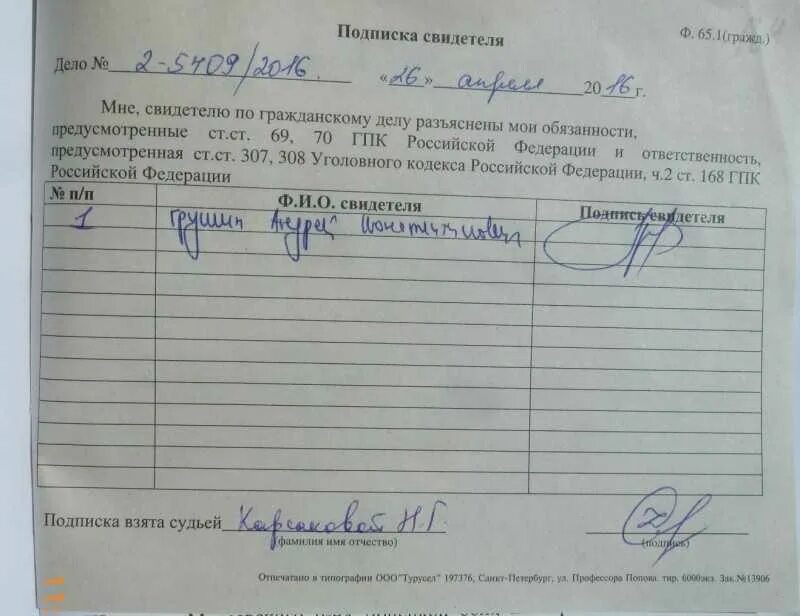 Подписка свидетеля
Ф. 65.1(гражд.)
Дело № 2-5409/2016. «26» апреля 2016 г.
Мне, свидетелю по гражданскому делу разъяснены мои обязанности,
предусмотренные ст.ст. 69, 70 ГПК Российской Федерации и ответственность,
предусмотренная ст.ст. 307, 308 Уголовного кодекса Российской Федерации, ч.2 ст. 168 ГПК
Российской Федерации
№ п/п Ф.И.О. свидетеля Подпись свидетеля
1 Грушин Андрей Константинович
Подписка взята судьей Карсаковой Н.Г.
(фамилия имя отчество) (подпись)
Отпечатано в типографии ООО"Турусел" 197376, Санкт-Петербург, ул. Профессора Попова. тир. 6000экз. Зак.№13906